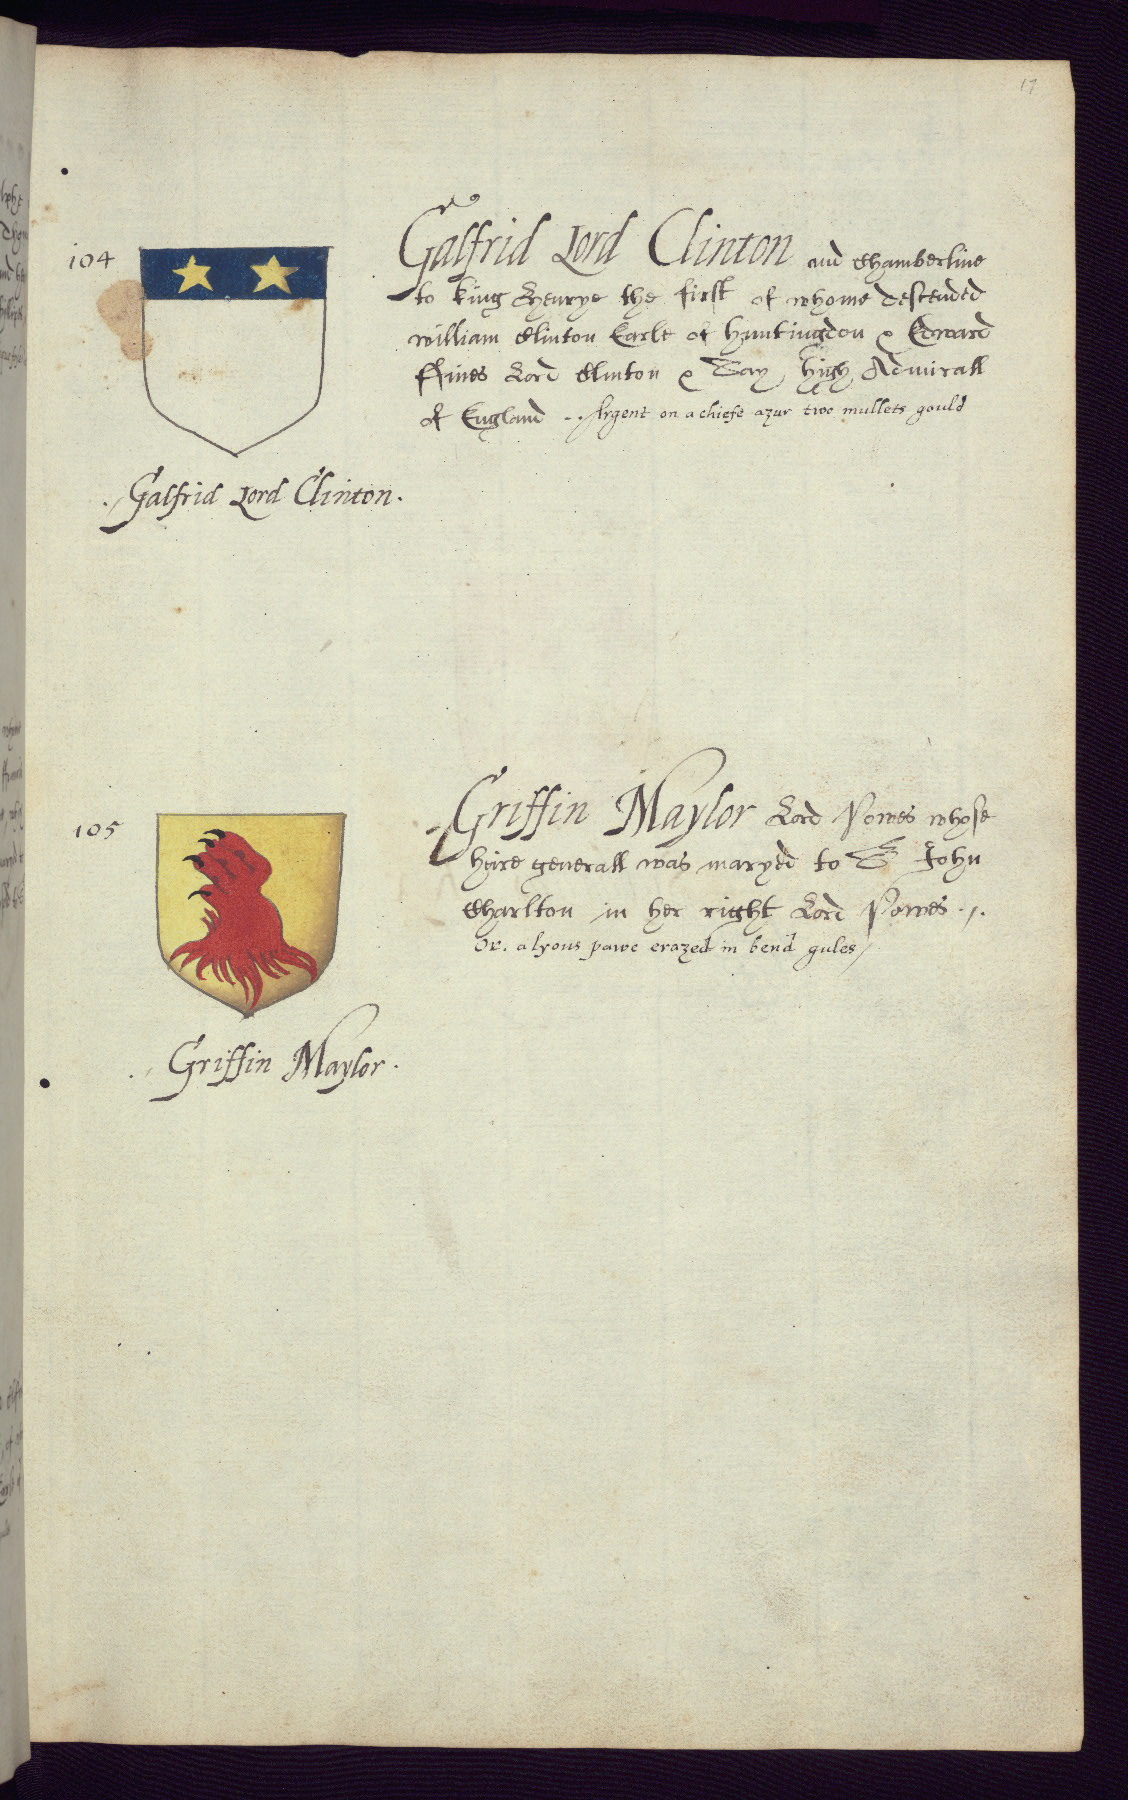 17
104
Galfrid Lord Clinton and Chamberline
to king Henrye the first of whome descended
william Clinton Earle of Huntingdon & Edward
ffines Lord Clinton & Say high Admirall
of England Argent on a chiefe azur two mullets gould
Galfrid Lord Clinton.
105
Griffin Maylor Lord Powes whose
heire generall was maryed to Sr John
Charlton in her right Lord Powes
Or. a lyons pawe erazed in bend gules
Griffin Maylor.